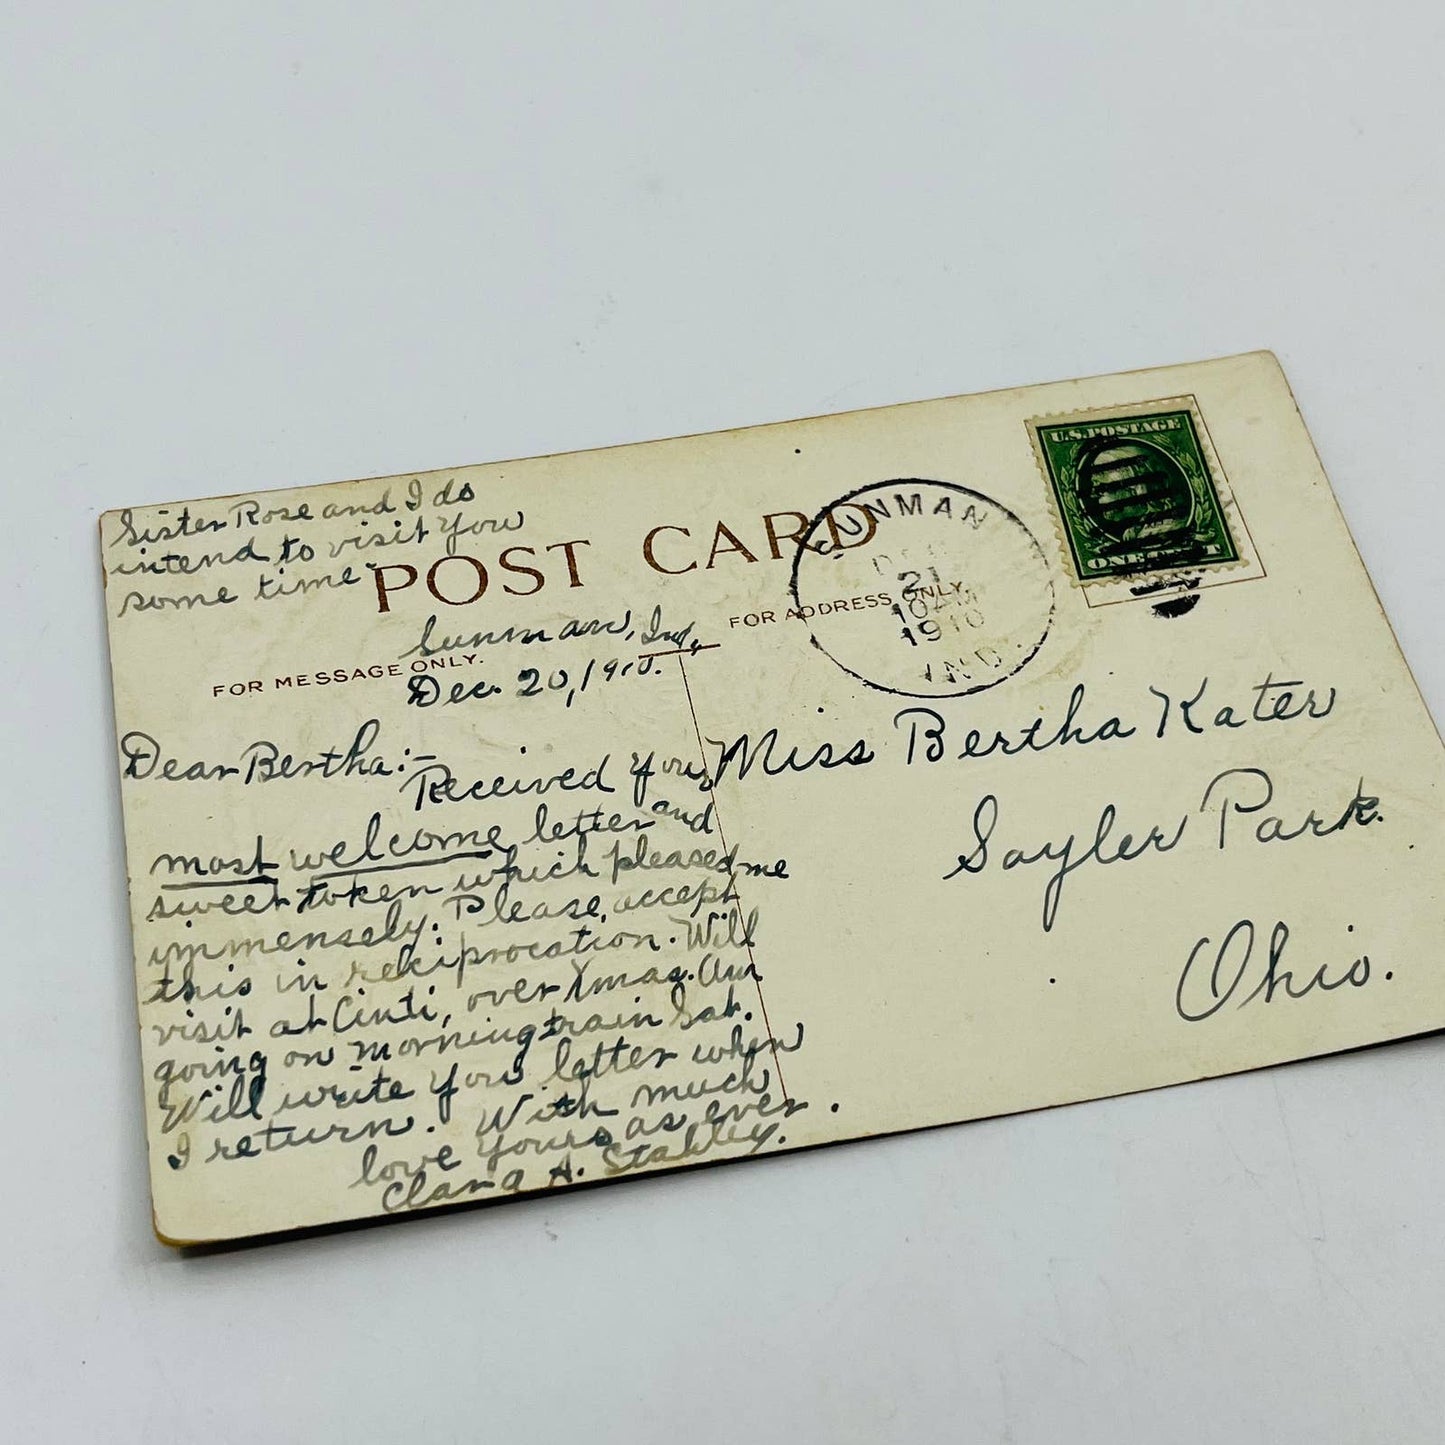 Sister Rose and I do
intend to visit you
some time.
POST CARD
FOR MESSAGE ONLY.
FOR ADDRESS ONLY.
SUNMAN
DEC
21
10 AM
1910
IND.
U.S. POSTAGE
ONE CENT
Sunman, Ind.,
Dec. 20, 1910.
Dear Bertha:-
Received your
most welcome letter and
sweet token which pleased me
immensely. Please, accept
this in reciprocation. Will
visit at Cinti, over Xmas. Am
going on morning train Sat.
Will write you letter when
I return. With much
love yours as ever.
Clara A. Stahley.
Miss Bertha Kater
Sayler Park.
Ohio.